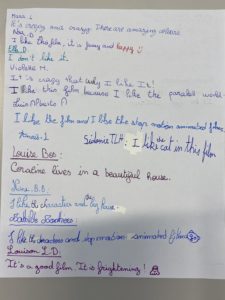 Mara. L
It's crazy and crazy. There are amazing colors
Noa. D
I like this film, it is funny and happy :)
Ella. D
I don't like it.
Violette M.
It is crazy that why I like It!
I like this film because I like the parallel world
Luis Alberto
I like the film and I like the stop motion animated films
Sidonie TLH: I like the cat in this film
Louise Bos:
Coraline lives in a beautiful house.
B.B.:
I like the characters and the big house
I like the characters and stop motion animated films
Louison L.D.
It's a good film. It is frightening!